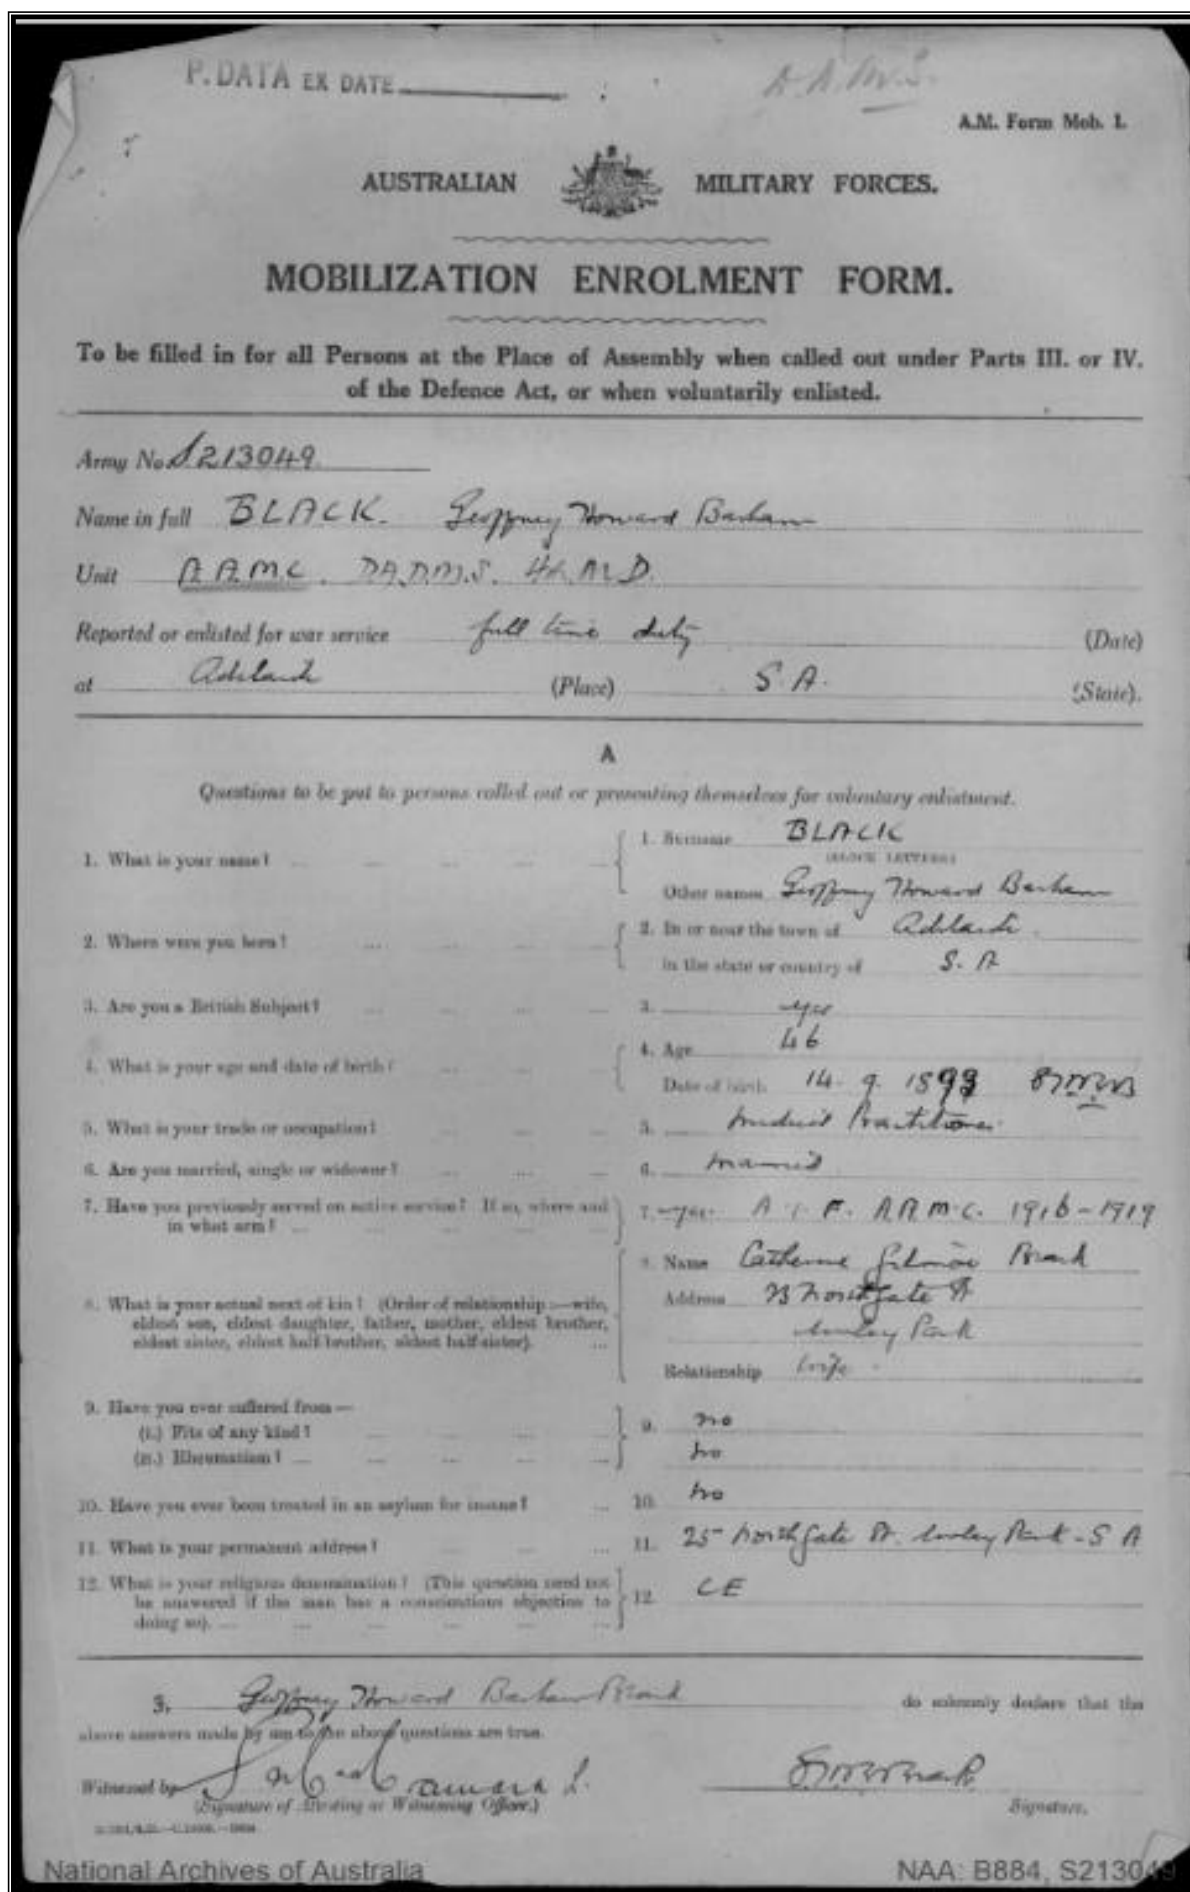 P. DATA EX DATE
A.M. Form Mob. 1.
AUSTRALIAN MILITARY FORCES.
MOBILIZATION ENROLMENT FORM.
To be filled in for all Persons at the Place of Assembly when called out under Parts III. or IV.
of the Defence Act, or when voluntarily enlisted.
Army No. S213049
Name in full BLACK. Geoffrey Howard Barham
Unit A.A.M.C. D.A.D.M.S.
Reported or enlisted for war service full time duty (Date)
at Adelaide (Place) S.A. (State).
A
Questions to be put to persons called out or presenting themselves for voluntary enlistment.
1. What is your name? 1. Surname BLACK
(BLOCK LETTERS)
Other names Geoffrey Howard Barham
2. Where were you born? 2. In or near the town of Adelaide.
in the state or country of S. A
3. Are you a British Subject? 3. yes
4. What is your age and date of birth? 4. Age 46
Date of birth 14. 9. 1893
5. What is your trade or occupation? 5. Medical Practitioner
6. Are you married, single or widower? 6. Married
7. Have you previously served on active service? If so, where and 7. yes. A.I.F. A.A.M.C. 1916-1919
in what arm?
8. Name Catherine Gilmore Black
8. What is your actual next of kin? (Order of relationship:—wife, Address Northgate St
eldest son, eldest daughter, father, mother, eldest brother, Unley Park
eldest sister, eldest half-brother, eldest half-sister).
Relationship Wife.
9. Have you ever suffered from—
(i.) Fits of any kind? 9. no
(ii.) Rheumatism? no
10. Have you ever been treated in an asylum for insane? 10. no
11. What is your permanent address? 11. 25 Northgate St. Unley Park - S A
12. What is your religious denomination? (This question need not 12. CE
be answered if the man has a conscientious objection to
doing so).
Geoffrey Howard Barham Black do solemnly declare that the
above answers made by me to the above questions are true.
Witnessed by
(Signature of Attesting or Witnessing Officer.) Signature.
National Archives of Australia NAA: B884, S213049